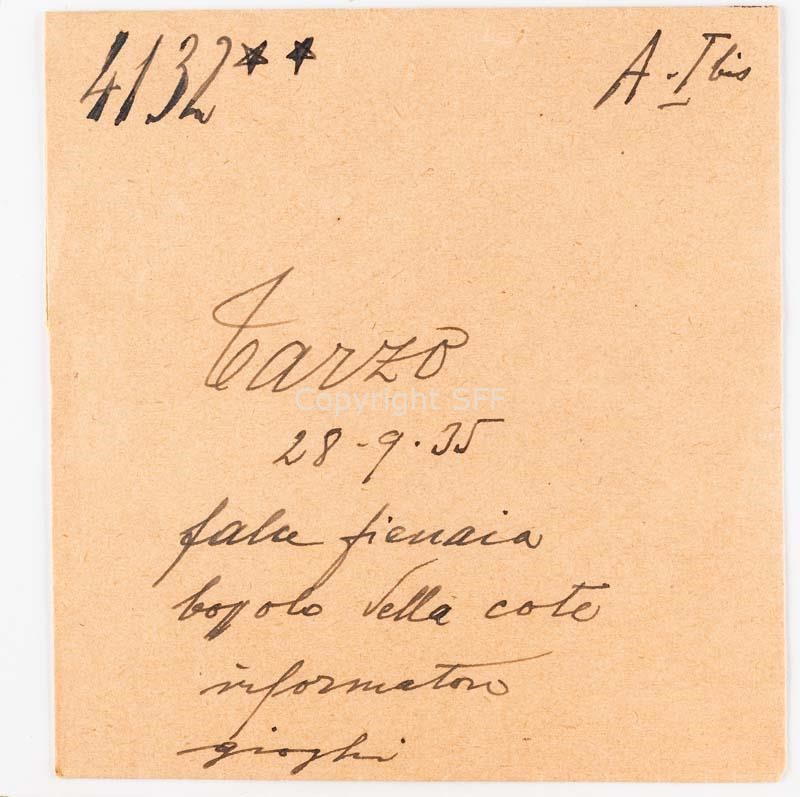 4132** A-I bis
Tarzo
Copyright SFF
28-9-35
falce fienaia
bossolo della cote
informatore
gioghi